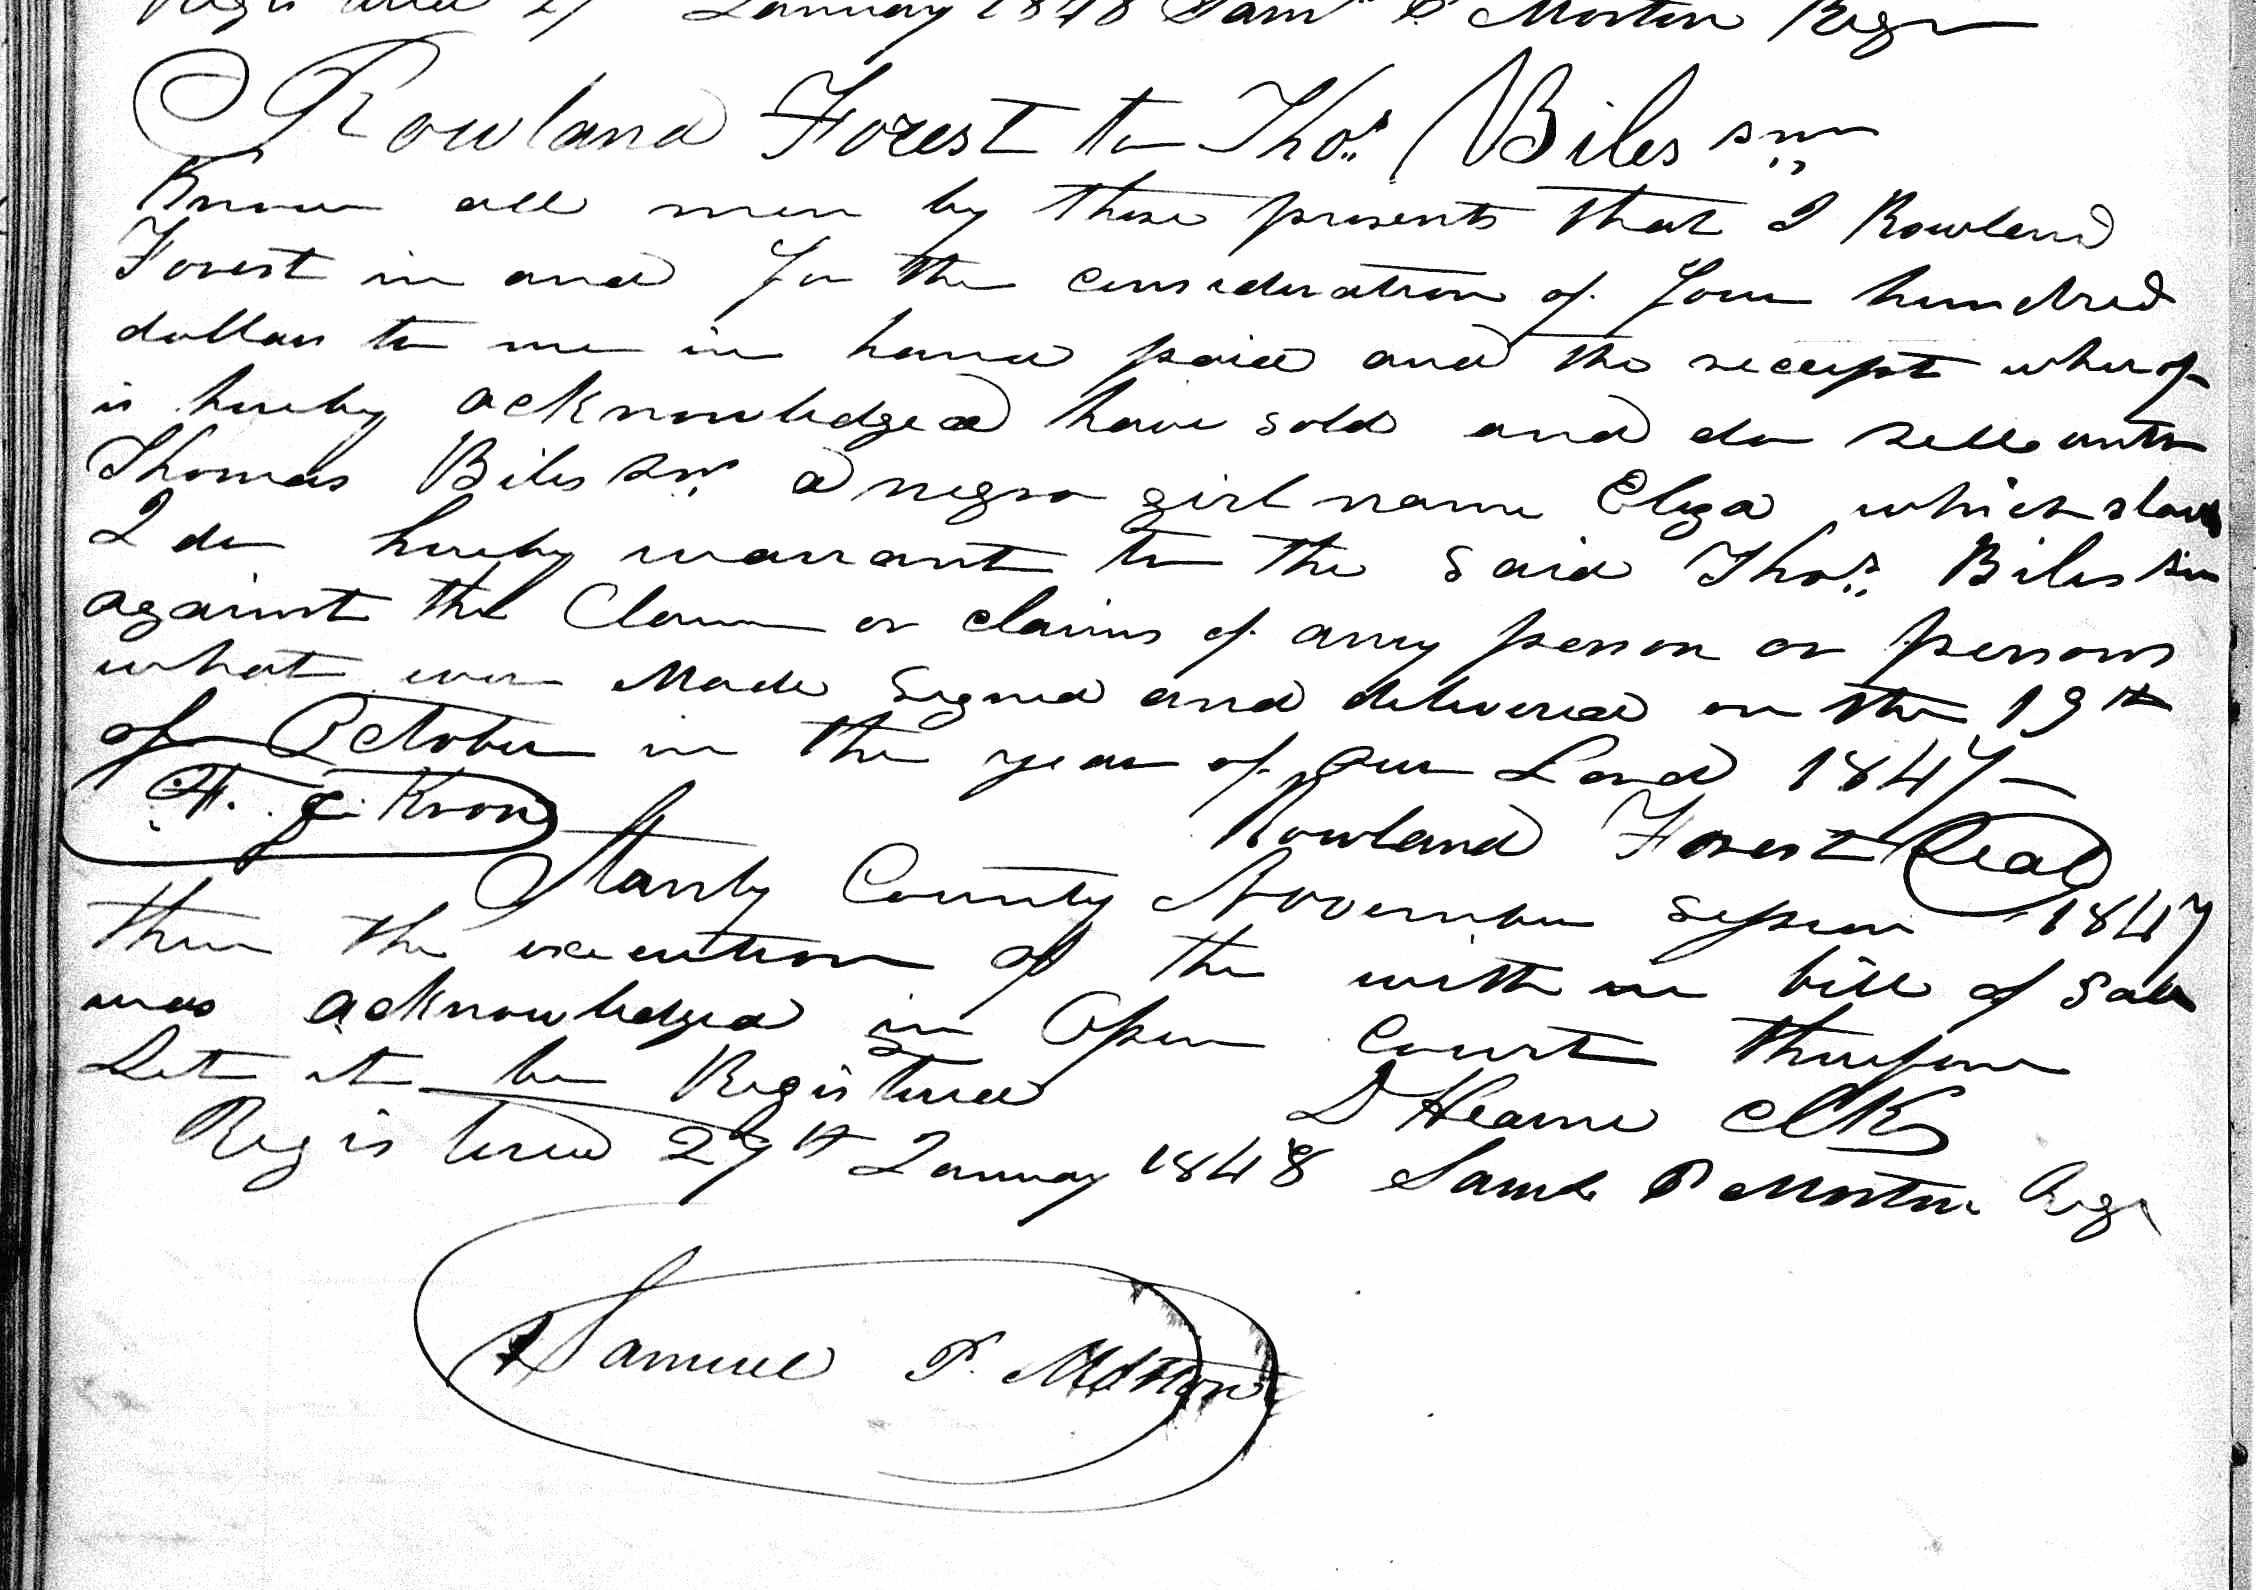 Registered 27 January 1848 Saml P Morton Regr
Rowland Forest to Thos Biles snr
Know all men by these presents that I Rowland
Forest in and for the consideration of four hundred
dollars to me in hand paid and the receipt wherof
is hereby acknowledged have sold and do sell unto
Thomas Biles snr a negro girl name Eliza which slave
I do hereby warrant to the said Thos Biles sen
against the Claim or claims of any person or persons
what ever Made Signed and delivered on the 19th
of October in the year of our Lord 1847
F. J. Kron
Rowland Forest Seal
Stanly County November Session 1847
then the execution of the with in bill of Sale
was acknowledged in Open Court therefore
Let it be Registered
D Hearne Clk
Registered 27th January 1848 Saml P Morton Regr
Samuel P. Morton